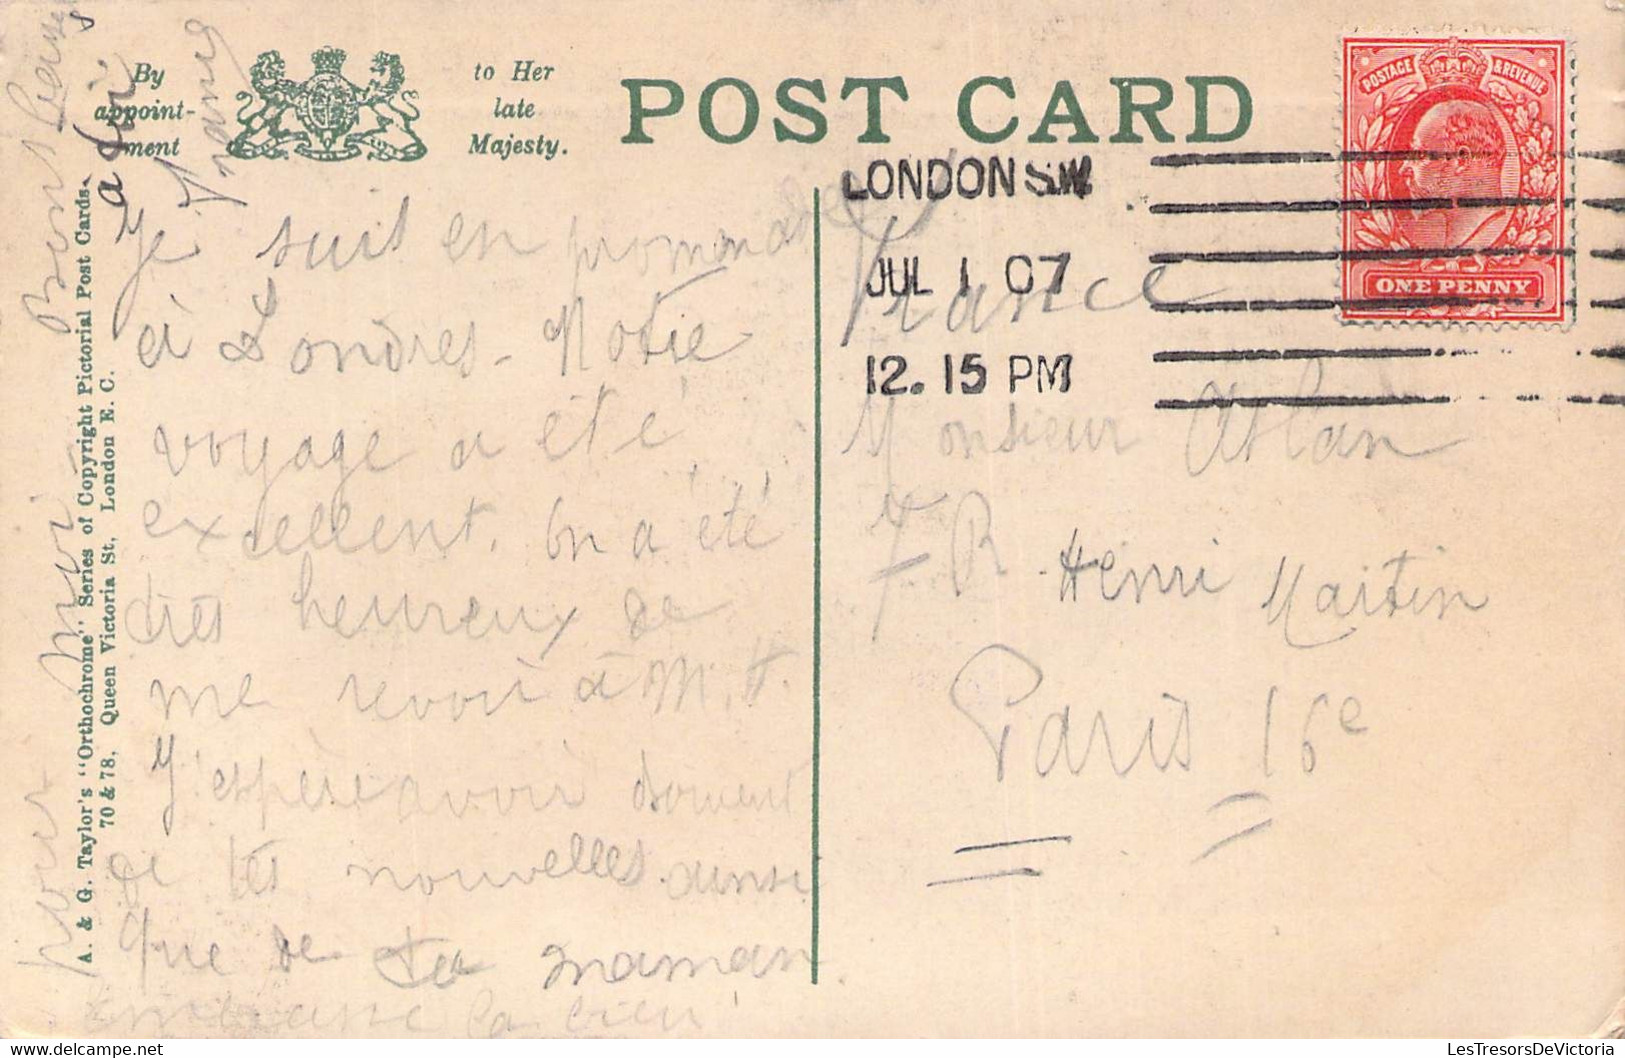 By
appoint-
ment
to Her
late
Majesty.
POST CARD
POSTAGE & REVENUE
ONE PENNY
LONDON S.W.
JUL 1 07
12. 15 PM
A. & G. Taylor's "Orthochrome" Series of Copyright Pictorial Post Cards.
70 & 78, Queen Victoria St., London E. C.
Je suis en promenade
à Londres - Notre
voyage a été
excellent. On a été
très heureux de
me revoir à M. H.
J'espère avoir
de tes nouvelles
que de ta maman
embrasse la bien
pour moi Bons
à toi
France
Monsieur
R Henri Martin
Paris 16e
LesTresorsDeVictoria